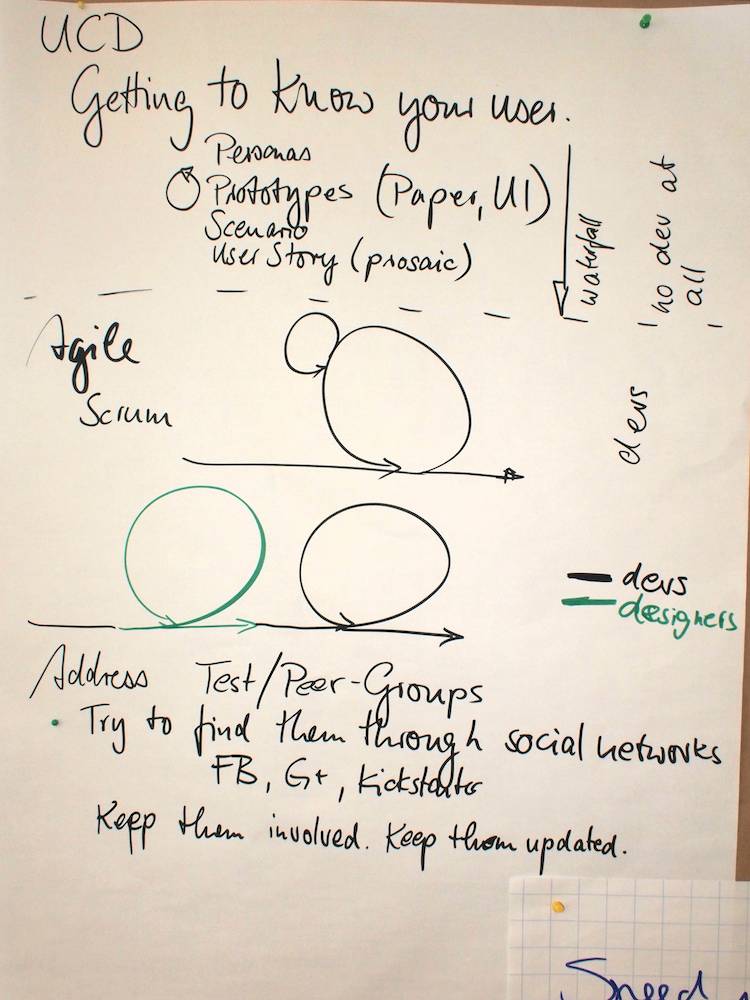 UCD
Getting to know your user.
Personas
Prototypes (Paper, UI)
Scenario
User Story (prosaic)
waterfall
no dev at
all
Agile
Scrum
devs
devs
designers
Address Test/Peer-Groups
Try to find them through social networks
FB, G+, Kickstarter
Keep them involved. Keep them updated.
Speed